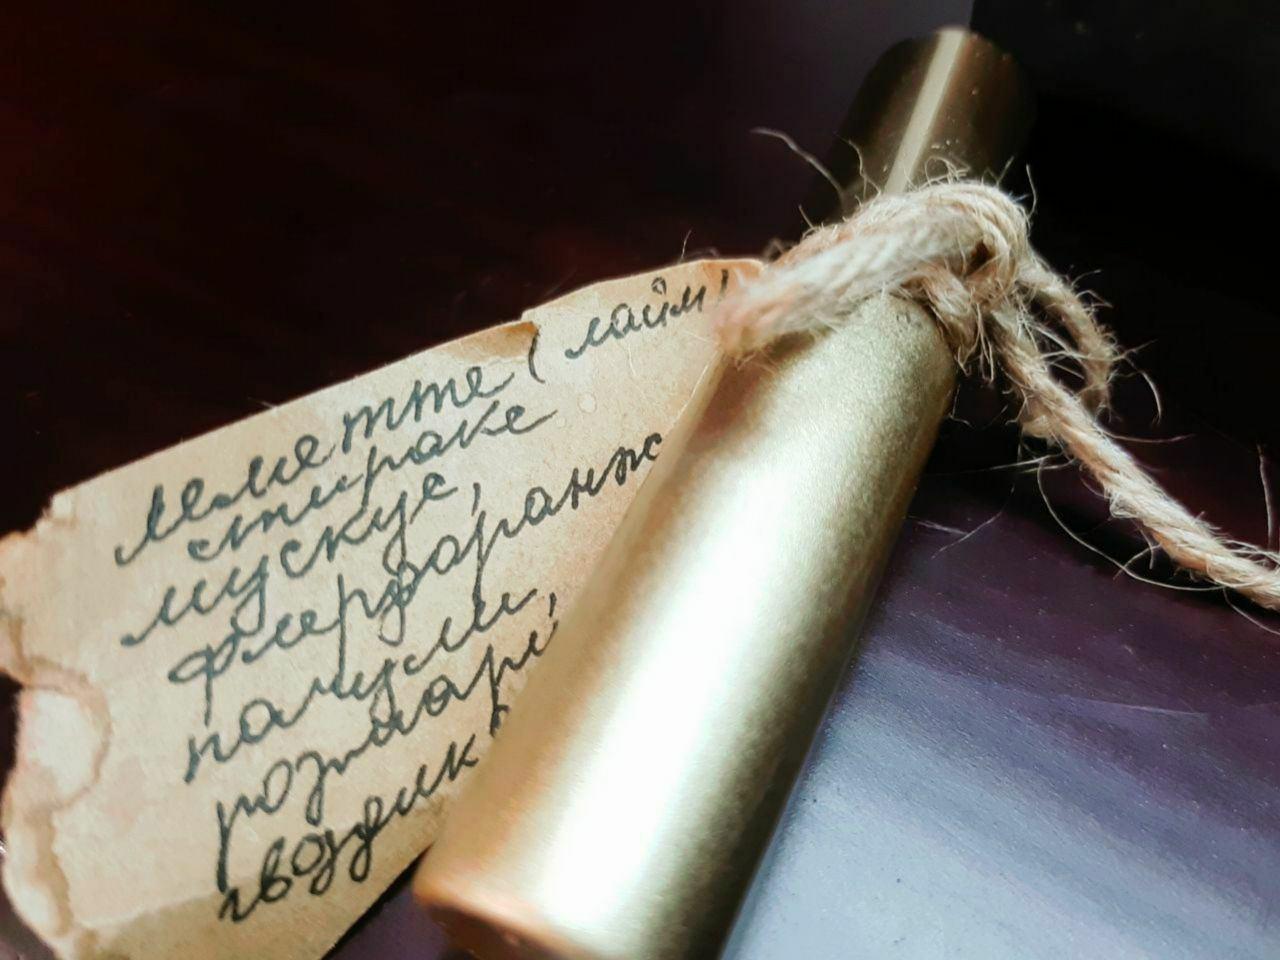 лиметте (лайм)
стиракс
мускус,
флердоранж
пачули,
розмари
гвоздик